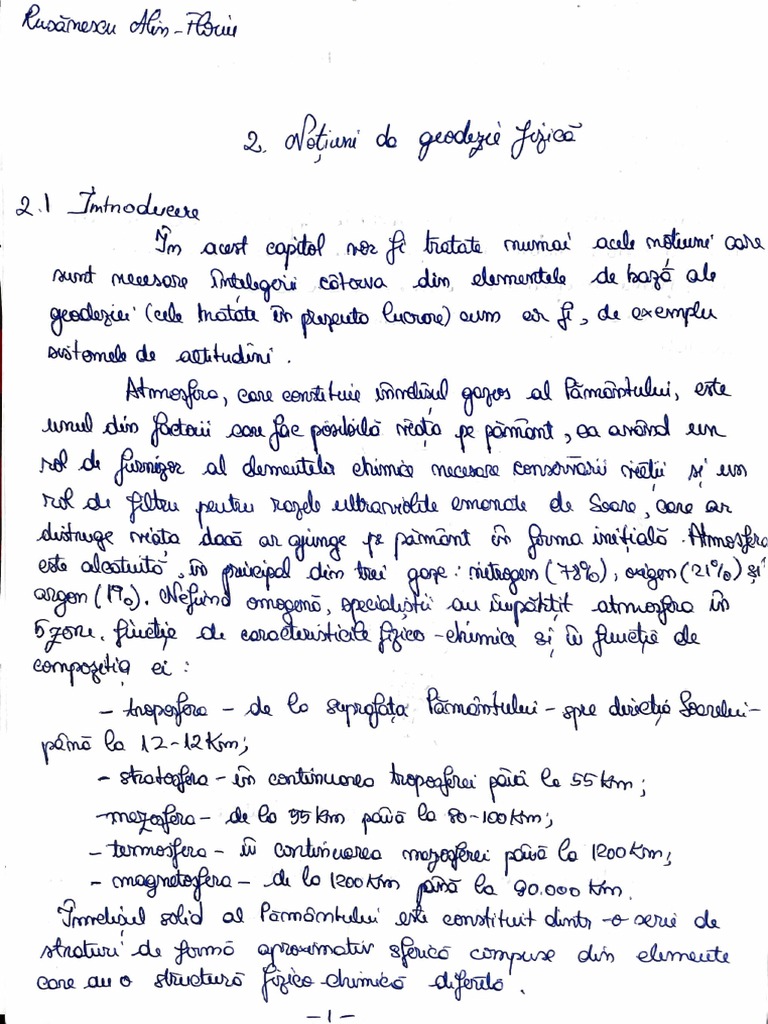 Rusănescu Alin-Florin
2. Noțiuni de geodezie fizică
2.1 Introducere
În acest capitol vor fi tratate numai acele noțiuni care
sunt necesare înțelegerii câtorva din elementele de bază ale
geodeziei (cele tratate în prezenta lucrare) cum ar fi, de exemplu
sistemele de altitudini.
Atmosfera, care constituie învelișul gazos al Pământului, este
unul din factorii care fac posibilă viața pe pământ, ea având un
rol de furnizor al elementelor chimice necesare conservării vieții și un
rol de filtru pentru razele ultraviolete emanate de Soare, care ar
distruge viața dacă ar ajunge pe pământ în forma inițială. Atmosfera
este alcatuită, în principal din trei gaze: nitrogen (78%), oxigen (21%) și
argon (1%). Nefiind omogenă, specialiștii au împărțit atmosfera în
5 zone, funcție de caracteristicile fizico-chimice și în funcție de
compoziția ei:
- troposfera - de la suprafața Pământului - spre direcția Soarelui -
până la 12-12 Km;
- stratosfera - în continuarea troposferei până la 55 Km;
- mezosfera - de la 55 Km până la 80-100 Km;
- termosfera - în continuarea mezosferei până la 1200 Km;
- magnetosfera - de la 1200 Km până la 90.000 Km.
Învelișul solid al Pământului este constituit dintr-o serie de
straturi de formă aproximativ sferică compuse din elemente
care au o structură fizico-chimică diferită.
-1-